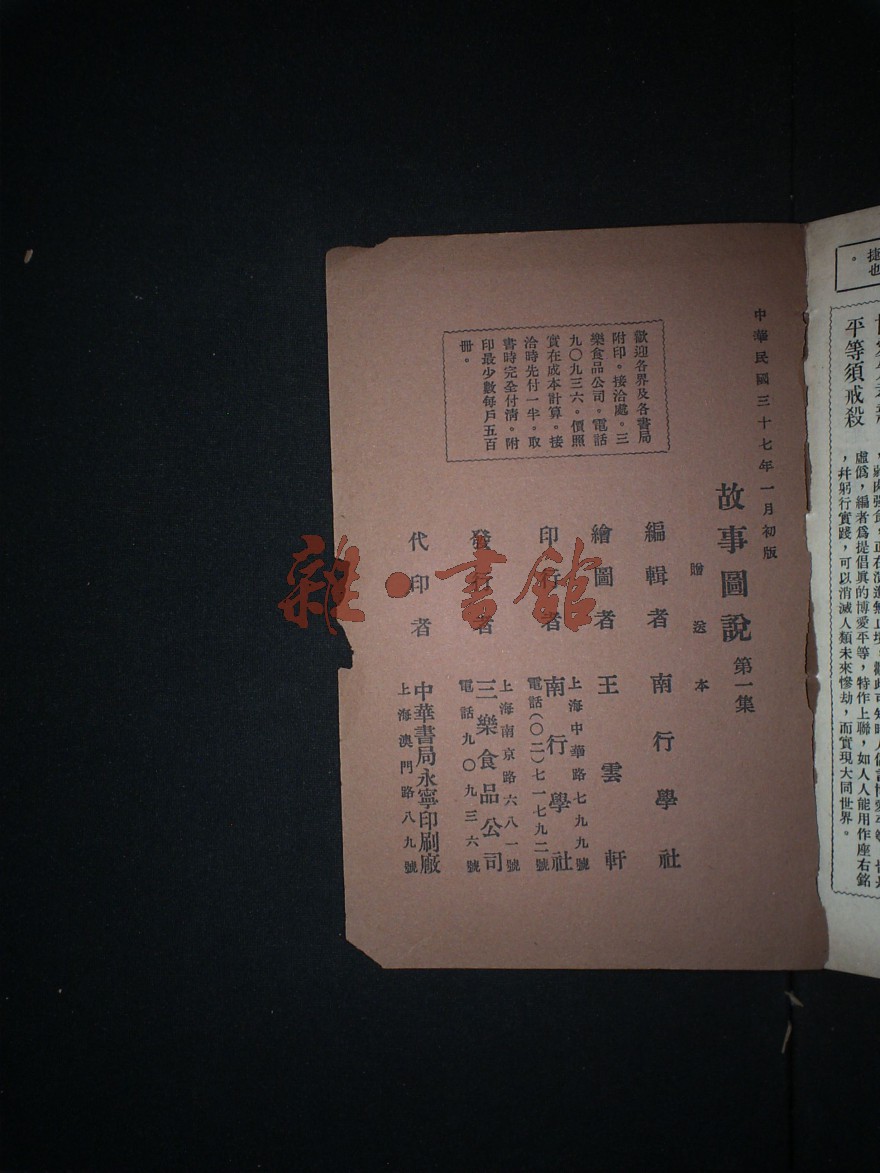 捷
也
。
平等須戒殺
虛僞，編者爲提倡眞的博愛平等，特作上聯，如人人能用作座右銘
，幷躬行實踐，可以消滅人類未來慘劫，而實現大同世界。
中華民國三十七年一月初版
故事圖說 第一集
贈送本
編輯者 南行學社
繪圖者 王雲軒
印行者 南行學社
上海中華路七九九號
電話(〇二)七一七九二號
發行者 三樂食品公司
上海南京路六八一號
電話九〇九三六號
代印者 中華書局永寧印刷廠
上海澳門路八九號
歡迎各界及各書局
附印。接洽處。三
樂食品公司。電話
九〇九三六。價照
實在成本計算。接
洽時先付一半。取
書時完全付清。附
印最少數每戶五百
冊。
雜·書館